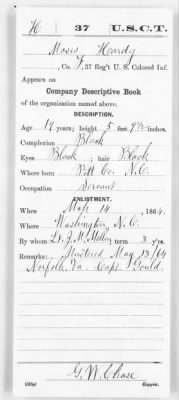 H 37 U.S.C.T.
Moses Hardy
, Co. F, 37 Reg't U. S. Colored Inf.
Appears on
Company Descriptive Book
of the organization named above.
DESCRIPTION.
Age 19 years; height 5 feet 4½ inches.
Complexion Black
Eyes Black; hair Black
Where born Pitt Co. N.C.
Occupation Servant
ENLISTMENT.
When Mch 14, 1864.
Where Washington, N.C.
By whom Lt. J. M. ; term 3 y'rs.
Remarks: Mustered May 13/64
Norfolk, Va Capt. Gould.
G. W. Chase
Copyist.